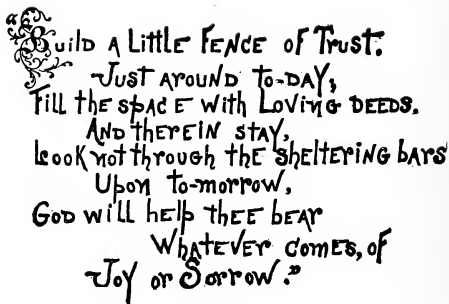 "Build a Little Fence of Trust.
Just around to-day;
Fill the space with Loving deeds.
And therein stay,
Look not through the sheltering bars
Upon to-morrow,
God will help thee bear
Whatever comes, of
Joy or Sorrow."